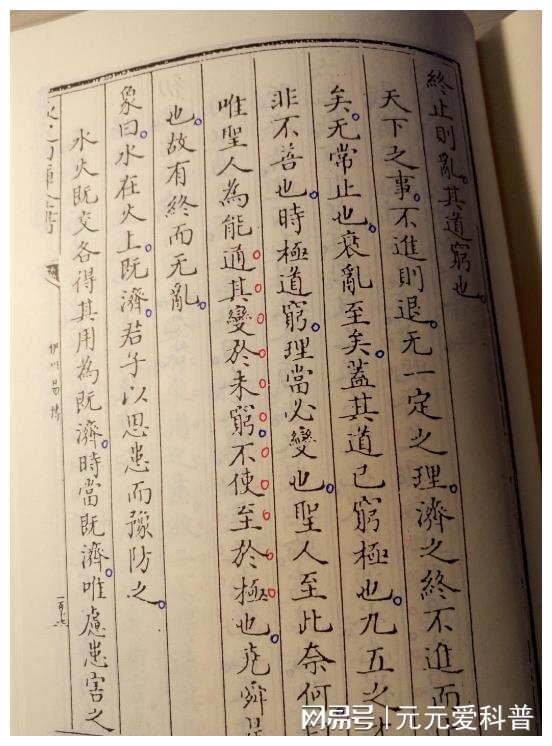 終止則亂其道窮也
天下之事不進則退无一定之理濟之終不進而
矣无常止也衰亂至矣蓋其道已窮極也九五之
非不善也時極道窮理當必變也聖人至此奈何
唯聖人為能通其變於未窮不使至於極也堯舜是
也故有終而无亂
象曰水在火上既濟君子以思患而豫防之
水火既交各得其用為既濟時當既濟唯慮患害之
伊川易傳
网易号 | 元元爱科普